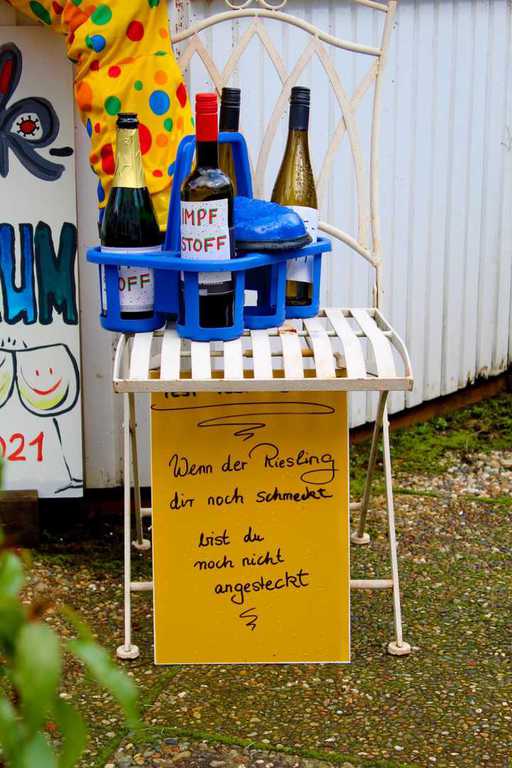 UM
2021
OFF
IMPF
STOFF
Wenn der Riesling
dir noch schmeckt
bist du
noch nicht
angesteckt